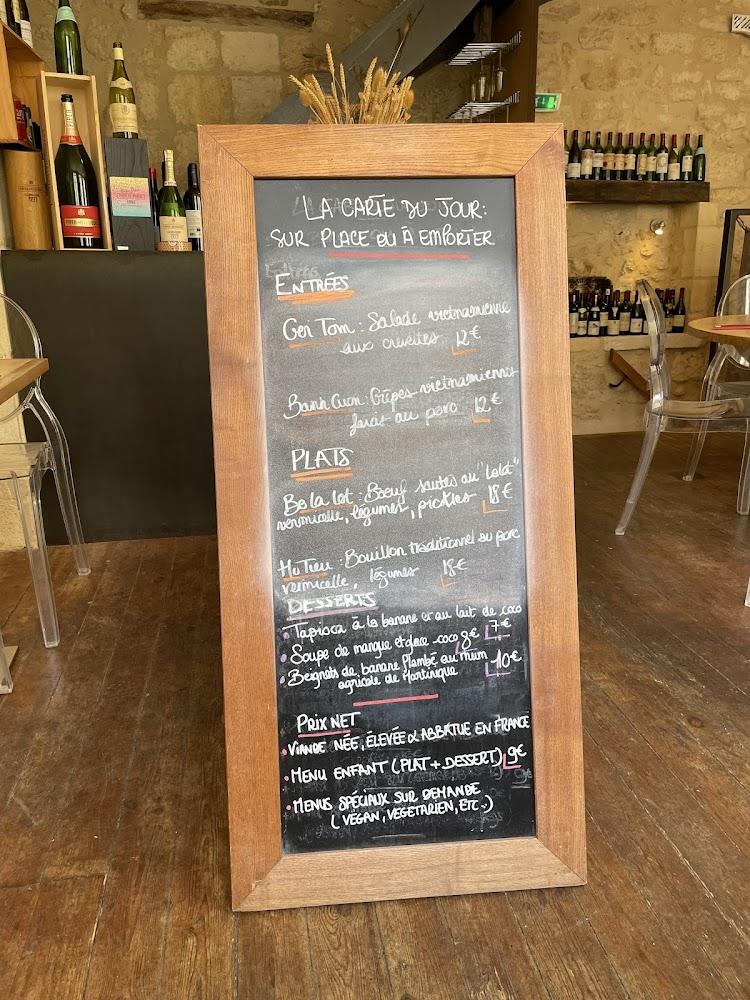 LA CARTE DU JOUR:
SUR PLACE OU À EMPORTER
ENTRÉES
Goi Tom : Salade vietnamienne
aux crevettes 12€
Banh Cuon : Crêpes vietnamiennes
farcis au porc 12€
PLATS
Bo la lot : Boeuf sautés au "Lolot"
vermicelle, légumes, pickles 18€
Hu Tieu : Bouillon traditionnel au porc
vermicelle, légumes 18€
DESSERTS
• Tapioca à la banane et au lait de coco 7€
• Soupe de mangue et glace coco 8€
• Beignets de banane flambé au rhum 10€
agricole de Martinique
PRIX NET
• VIANDE NÉE, ÉLEVÉE & ABBATUE EN FRANCE
• MENU ENFANT (PLAT + DESSERT) 9€
• MENUS SPÉCIAUX SUR DEMANDE
(VEGAN, VEGETARIEN, ETC...)